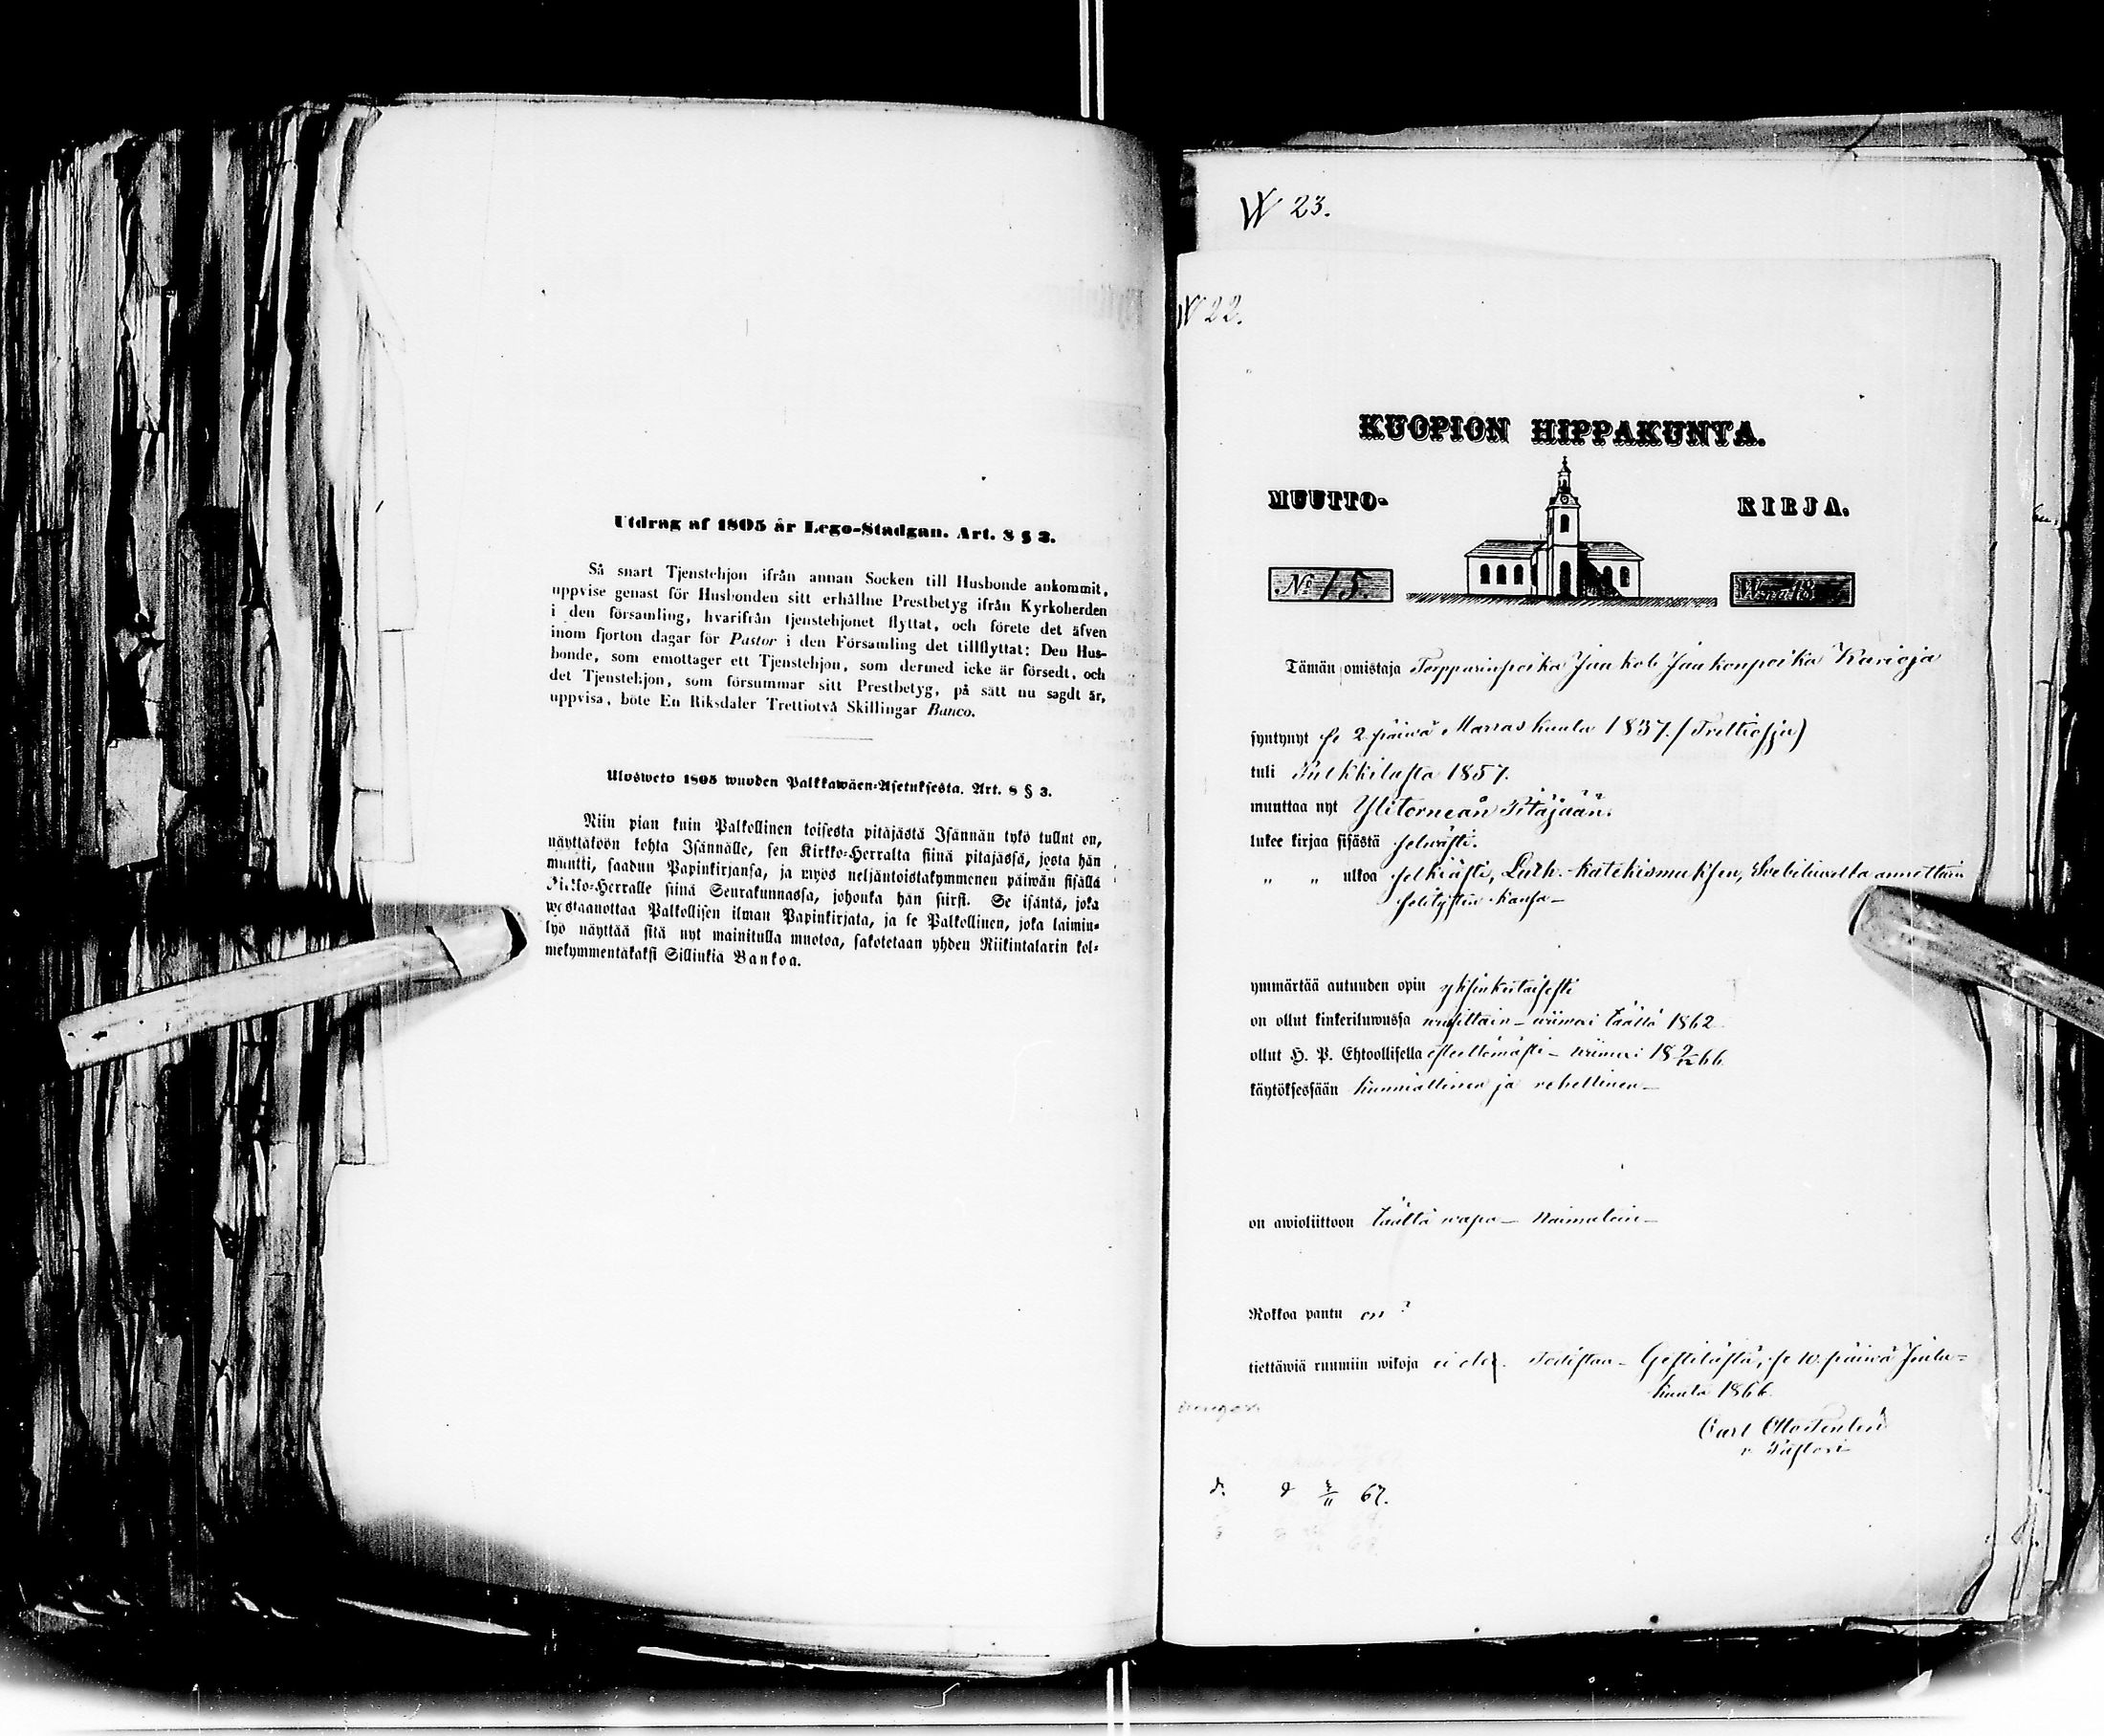 Utdrag af 1805 år Lego-Stadgan. Art. 8 § 3.
Så snart Tjenstehjon ifrån annan Socken till Husbonde ankommit,
uppvise genast för Husbonden sitt erhållne Prestbetyg ifrån Kyrkoherden
i den församling, hvarifrån tjenstehjonet flyttat, och förete det äfven
inom fjorton dagar för Pastor i den Församling det tillflyttat: Den Hus-
bonde, som emottager ett Tjenstehjon, som dermed icke är försedt, och
det Tjenstehjon, som försummar sitt Prestbetyg, på sätt nu sagdt är,
uppvisa, böte En Riksdaler Trettiotvå Skillingar Banco.
Ulosweto 1805 wuoden Palkkawäen-Asetuksesta. Art. 8 § 3.
Niin pian kuin Palkollinen toisesta pitäjästä Isännän tykö tullut on,
näyttäköön kohta Isännälle, sen Kirkko-Herralta siinä pitäjässä, josta hän
muutti, saadun Papinkirjansa, ja myös neljäntoistakymmenen päiwän sisällä
Kirkko-Herralle siinä Seurakunnassa, johonka hän siirsi. Se isäntä, joka
wastaanottaa Palkollisen ilman Papinkirjata, ja se Palkollinen, joka laimin-
lyö näyttää sitä nyt mainitulla muotoa, sakotetaan yhden Riikintalarin kol-
mekymmentäkaksi Sillinkiä Bankoa.
N 23.
N 22.
KUOPION HIPPAKUNTA.
MUUTTO- KIRJA.
No 15.
Tämän omistaja Torpparinpoika Jaakob Jaakonpoika Karioja
syntynyt se 2 päiwä Marraskuuta 1837. /
tuli Pulkkilasta 1857.
muuttaa nyt Ylitorneån Pitäjään.
lukee kirjaa sisästä selwästi.
„ „ ulkoa selkiästi, Luth. katekismuksen, Svebiliuselta annettuin
selitysten kansa -
ymmärtää autuuden opin yksinkertaisesti
on ollut kinkeriluwussa wuosittain - wiimexi täällä 1862
ollut H. P. Ehtoollisella esteettömästi - wiimexi 18 9/12 66
käytöksessään kunniallinen ja rehellinen -
on awioliittoon täältä wapa - Naimatoin -
Rokkoa pantu on?
tiettäwiä ruumiin wikoja ei ole. Todistaa - Gestilästä, se 10. päiwä Joulu-
kuuta 1866.
v. Pastori
67.